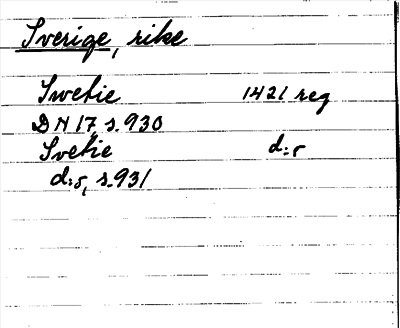 Sverige, rike
Swetie 1421 reg
DN 17, s. 930
Svetie d:o
d:o, s. 931